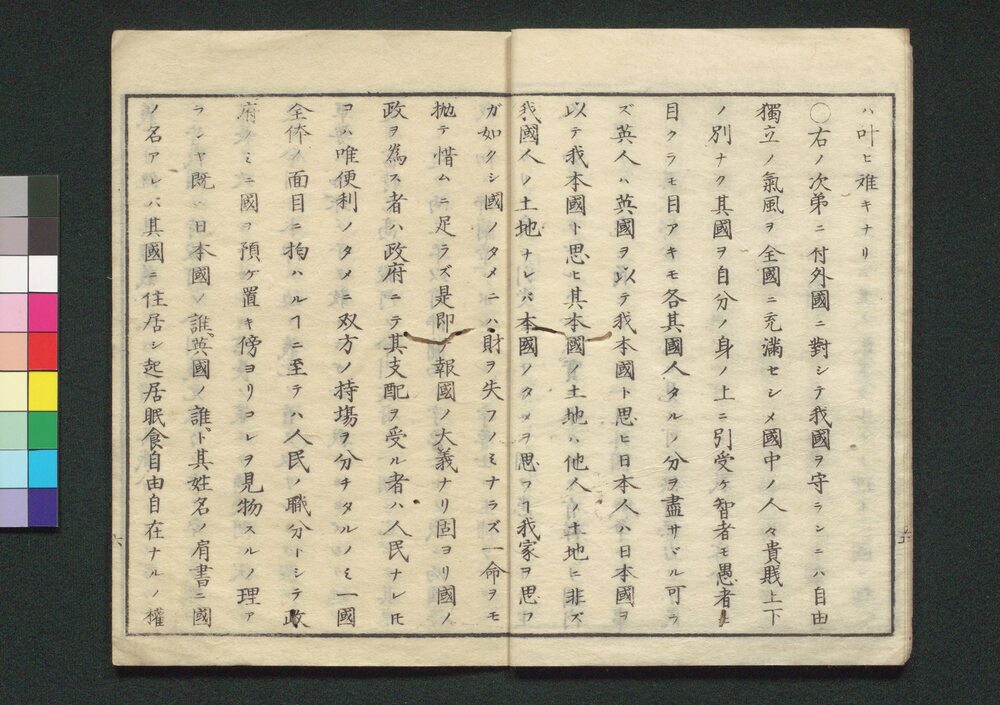 ハ叶ヒ难キナリ
○右ノ次第ニ付外國ニ對シテ我國ヲ守ランニハ自由
獨立ノ氣風ヲ全國ニ充滿セシメ國中ノ人々貴賎上下
ノ別ナク其國ヲ自分ノ身ノ上ニ引受ケ智者モ愚者モ
目クラモ目アキモ各其國人タルノ分ヲ盡サヾル可ラ
ズ英人ハ英國ヲ以テ我本國ト思ヒ日本人ハ日本國ヲ
以テ我本國ト思ヒ其本國ノ土地ハ他人ノ土地ニ非ズ
我國人ノ土地ナレバ本國ノタメヲ思フヿ我家ヲ思フ
ガ如クシ國ノタメニハ財ヲ失フノミナラズ一命ヲモ
抛テ惜ムニ足ラズ是即ノ報國ノ大義ナリ固ヨリ國ノ
政ヲ為ス者ハ政府ニテ其支配ヲ受ル者ハ人民ナレ𪜈
コハ唯便利ノタメニ双方ノ持塲ヲ分チタルノミ一國
全体ノ面目ニ拘ハルヿニ至テハ人民ノ職分トシテ政
府ノミニ國ヲ預ケ置キ傍ヨリコレヲ見物スルノ理ア
ランヤ既ニ日本國ノ誰、英國ノ誰、ト其姓名ノ肩書ニ國
ノ名アレバ其國ニ住居シ起居眠食自由自在ナルノ權